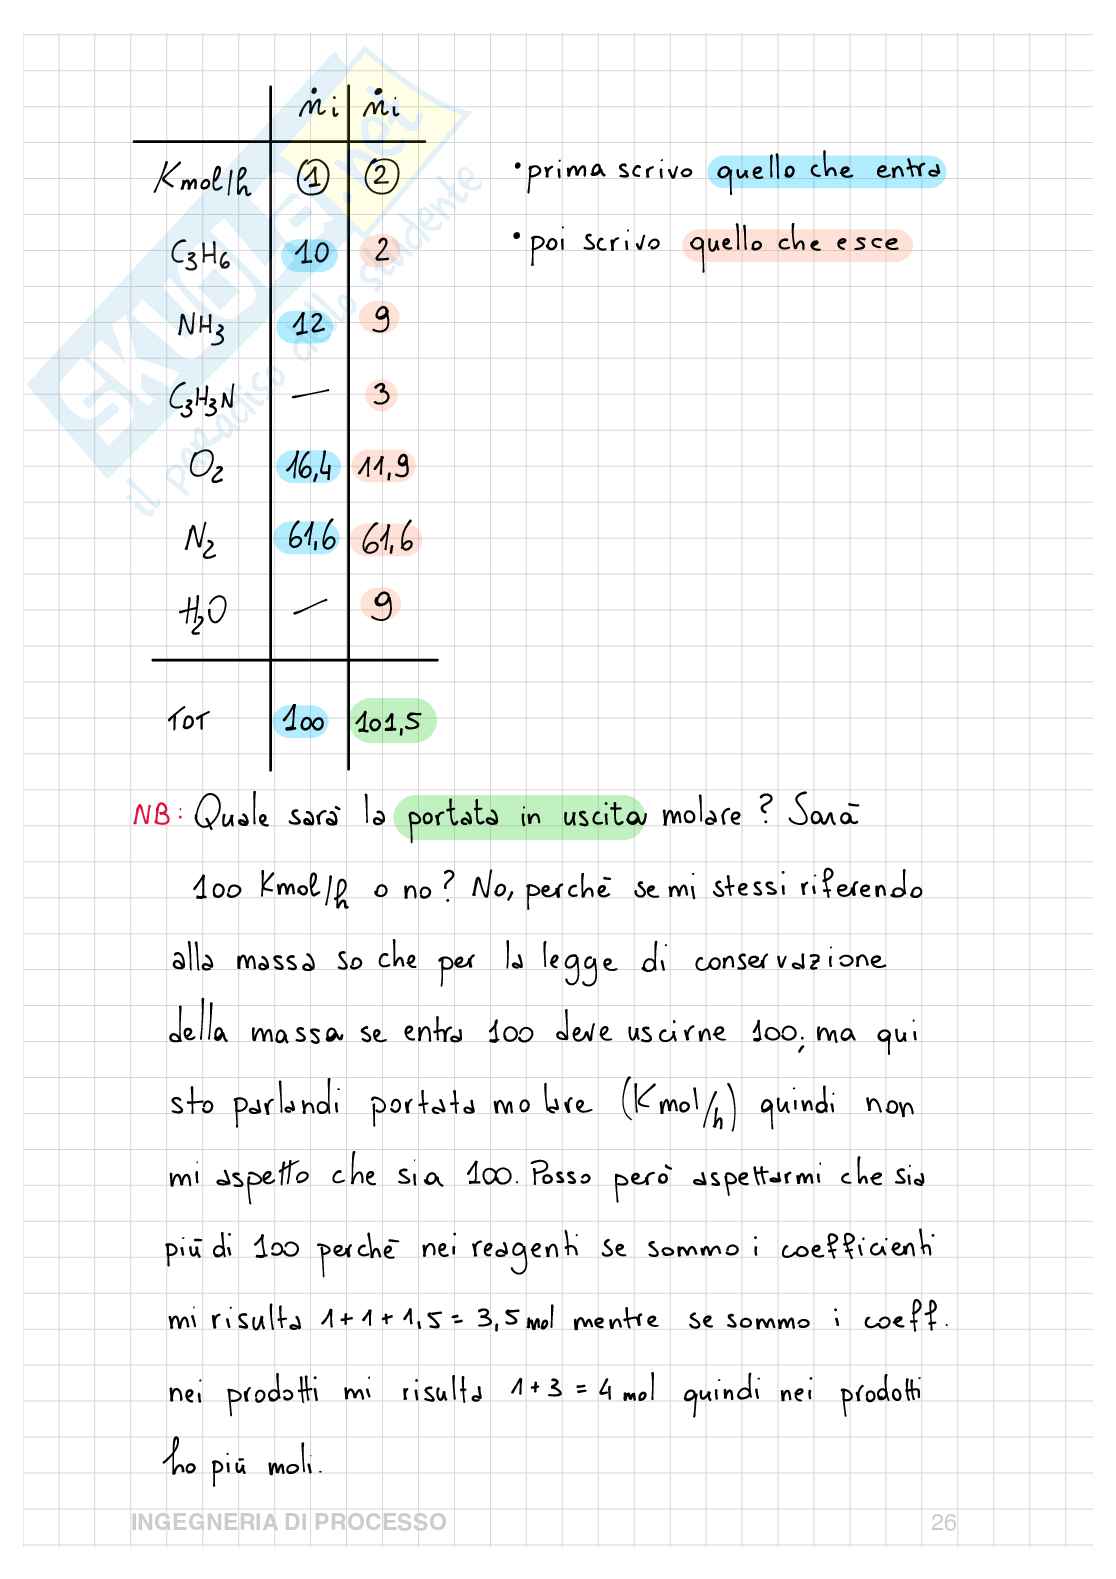 ṅi ṅi
Kmol/h ① ②
C3H6 10 2
NH3 12 9
C3H3N — 3
O2 16,4 11,9
N2 61,6 61,6
H2O — 9
TOT 100 101,5
• prima scrivo quello che entra
• poi scrivo quello che esce
SKUOLA.net
il paradiso dello studente
NB: Quale sarà la portata in uscita molare? Sarà
100 Kmol/h o no? No, perchè se mi stessi riferendo
alla massa so che per la legge di conservazione
della massa se entra 100 deve uscirne 100; ma qui
sto parlandi portata molare (Kmol/h) quindi non
mi aspetto che sia 100. Posso però aspettarmi che sia
più di 100 perchè nei reagenti se sommo i coefficienti
mi risulta 1+1+1,5 = 3,5 mol mentre se sommo i coeff.
nei prodotti mi risulta 1+3 = 4 mol quindi nei prodotti
ho più moli.
INGEGNERIA DI PROCESSO 26